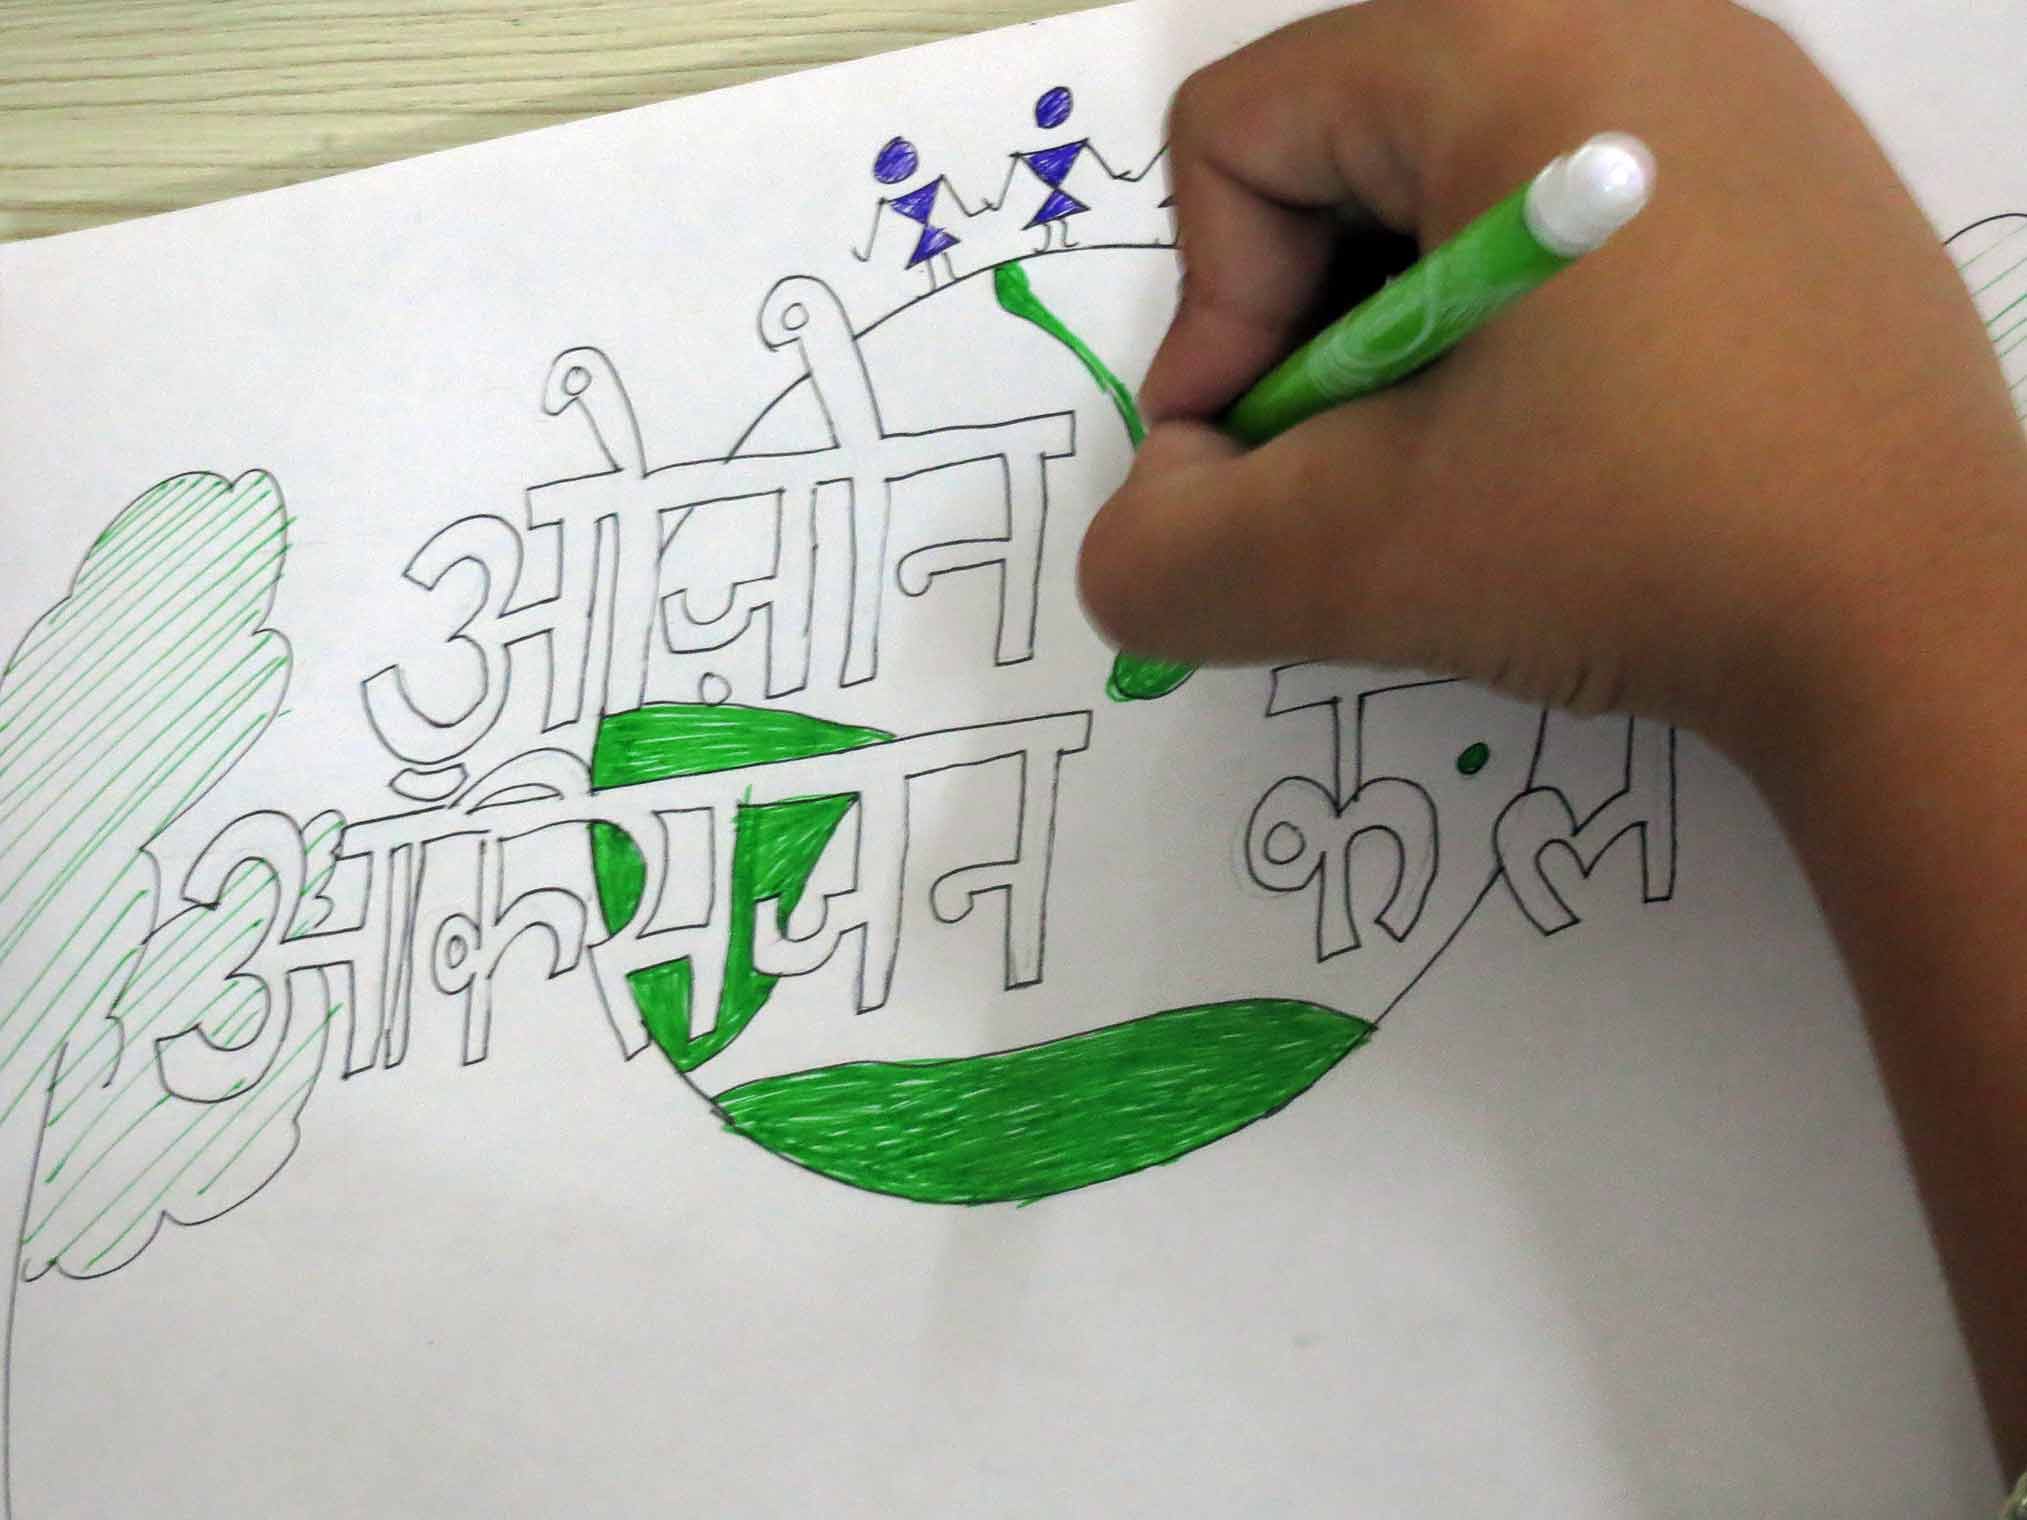 ओज़ोन
आक्सिजन कल